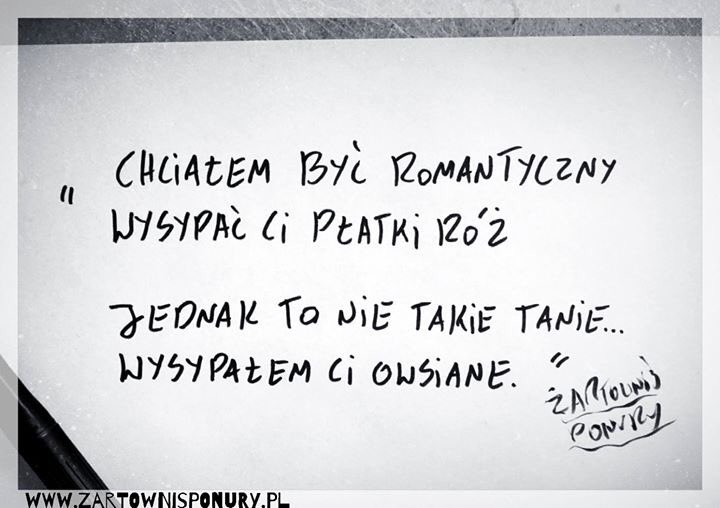 "CHCIAŁEM BYĆ ROMANTYCZNY
WYSYPAĆ CI PŁATKI RÓŻ
JEDNAK TO NIE TAKIE TANIE...
WYSYPAŁEM CI OWSIANE."
ŻARTOWNIŚ
PONURY
WWW.ZARTOWNISPONURY.PL